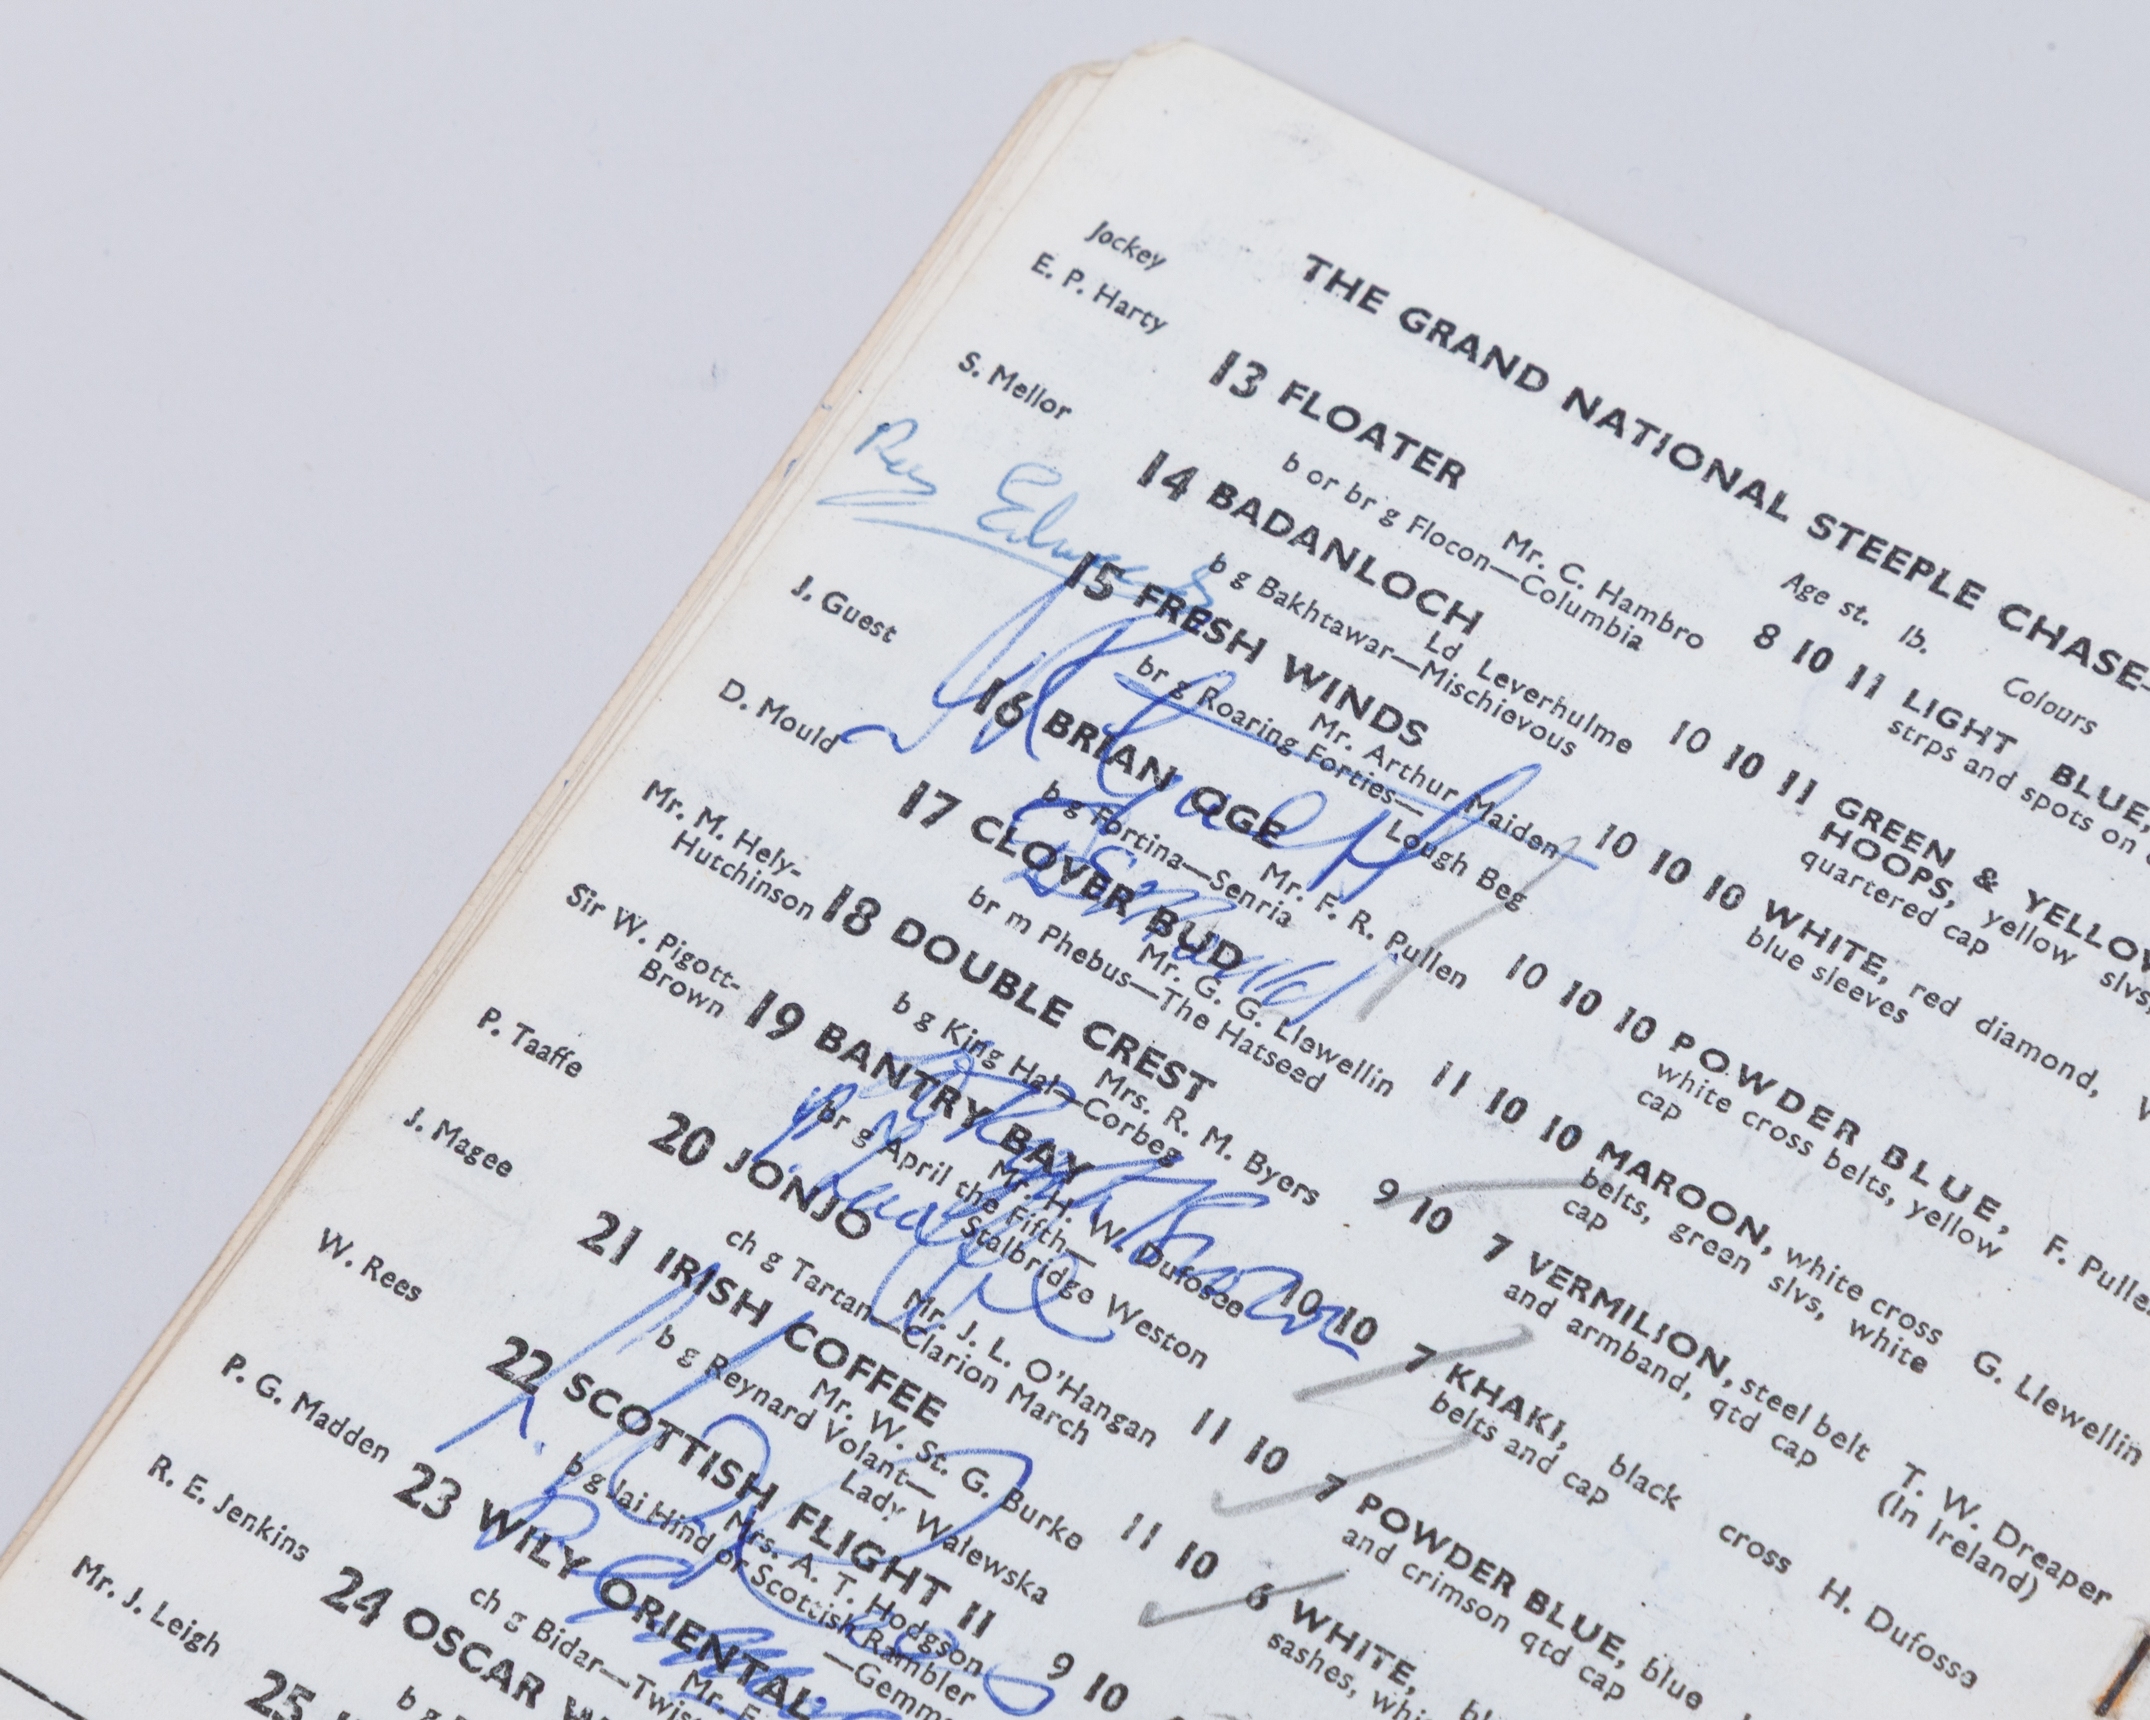 THE GRAND NATIONAL STEEPLE CHASE—
Jockey Age st. lb. Colours
E. P. Harty 13 FLOATER 8 10 11 LIGHT BLUE,
Mr. C. Hambro strps and spots on
b or br g Flocon—Columbia
S. Mellor 14 BADANLOCH 10 10 11 GREEN & YELLOW
Ld Leverhulme HOOPS, yellow slvs,
b g Bakhtawar—Mischievous quartered cap
Roy Edwards 15 FRESH WINDS 10 10 10 WHITE, red diamond,
Mr. Arthur Maiden blue sleeves
br g Roaring Forties—
Lough Beg
J. Guest 16 BRIAN OGE 10 10 10 POWDER BLUE, F. Pullen
Mr. F. R. Pullen white cross belts, yellow
b g Fortina—Senria cap
D. Mould 17 CLOVER BUD 11 10 10 MAROON, white cross G. Llewellin
Mr. G. G. Llewellin belts, green slvs, white
br m Phebus—The Hatseed cap
Mr. M. Hely-
Hutchinson 18 DOUBLE CREST 9 10 7 VERMILION, steel belt T. W. Dreaper
Mrs. R. M. Byers and armband, qtd cap (In Ireland)
b g King Hal—Corbeg
Sir W. Pigott-
Brown 19 BANTRY BAY 10 10 7 KHAKI, black cross H. Dufosee
Mr. H. W. Dufosee belts and cap
br g April the Fifth—
Stalbridge Weston
P. Taaffe 20 JONJO 11 10 7 POWDER BLUE, blue
Mr. J. L. O'Hangan and crimson qtd cap
ch g Tartan—Clarion March
J. Magee 21 IRISH COFFEE 11 10 6 WHITE,
Mr. W. St. G. Burke sashes,
b g Reynard Volant—
Lady Walewska
W. Rees 22 SCOTTISH FLIGHT II 9 10
Mrs. A. T. Hodgson
b g Jai Hind or Scottish Rambler
P. G. Madden 23 WILY ORIENTAL
ch g Bidar—
R. E. Jenkins 24 OSCAR
b g
Mr. J. Leigh 25